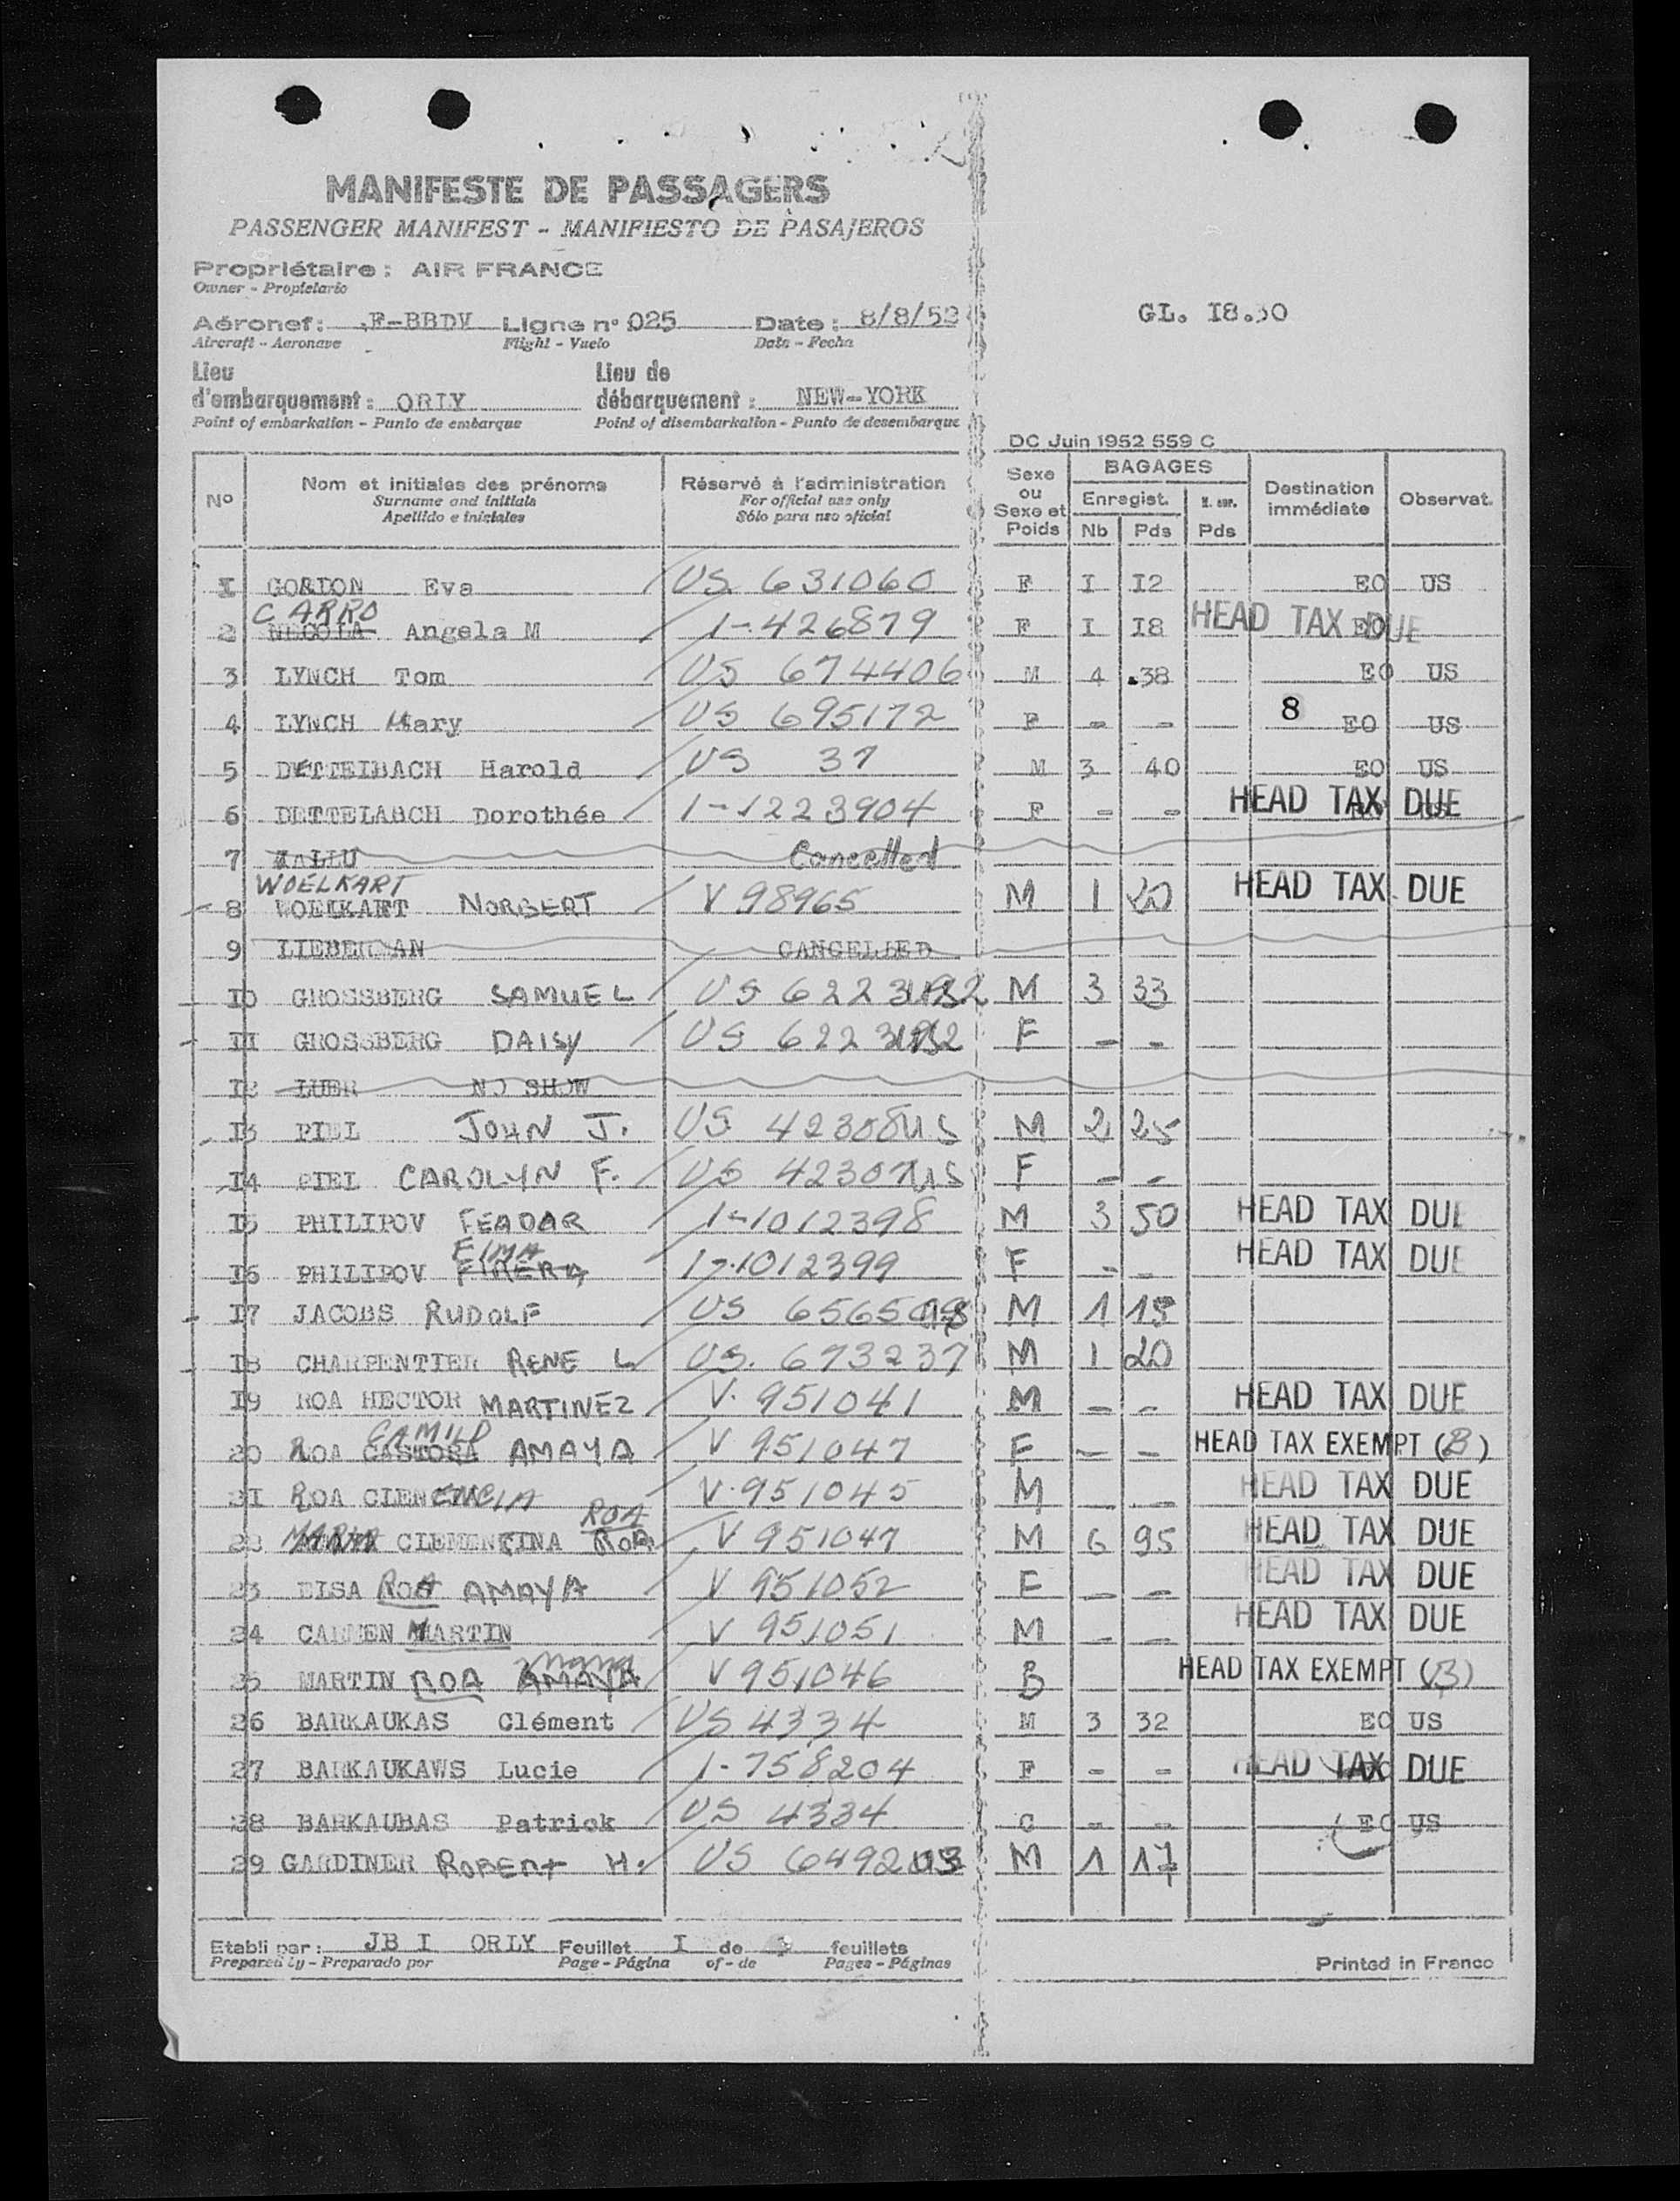 MANIFESTE DE PASSAGERS
PASSENGER MANIFEST - MANIFIESTO DE PASAJEROS
Propriétaire : AIR FRANCE
Owner - Propietario
GL. I8.30
Aéronef : F-BBDV Ligne n° 025 Date : 8/8/52
Aircraft - Aeronave Flight - Vuelo Date - Fecha
Lieu d'embarquement : ORLY Lieu de débarquement : NEW-YORK
Point of embarkation - Punto de embarque Point of disembarkation - Punto de desembarque
DC Juin 1952 559 C
N° Nom et initiales des prénoms Réservé à l'administration Sexe ou Sexe et Poids BAGAGES Destination immédiate Observat.
Surname and initials For official use only Enregist. N. enr.
Apellido e iniciales Sólo para uso oficial Nb Pds Pds
I GORDON Eva US 631060 F I I2 EO US
CARRO
2 Angela M 1-426879 F I I8 HEAD TAX DUE EO
3 LYNCH Tom US 674406 M 4 38 EO US
4 LYNCH Mary US 695172 F - - 8 EO US
5 DETTEIBACH Harold US 37 M 3 40 EO US
6 DETTELABCH Dorothée 1-1223904 F - - HEAD TAX DUE
7 MALLU Cancelled
WOELKART
8 WOELKART NORBERT V 98965 M 1 20 HEAD TAX DUE
9 LIEBERMAN CANCELLED
IO GROSSBERG SAMUEL US 6223 M 3 33
II GROSSBERG DAISY US 6223 F - -
I2 LUER NO SHOW
I3 PIEL JOHN J. US 42308 US M 2 25
I4 PIEL CAROLYN F. US 42307 US F - -
I5 PHILIPOV FEADAR 1-1012398 M 3 50 HEAD TAX DUE
EIMA
I6 PHILIPOV 1-1012399 F - - HEAD TAX DUE
I7 JACOBS RUDOLF US 6565 M 1 15
I8 CHARPENTIER RENE L US. 673237 M 1 20
I9 ROA HECTOR MARTINEZ V. 951041 M - - HEAD TAX DUE
CAMILO
20 ROA CASTORA AMAYA V 951047 F - - HEAD TAX EXEMPT (B)
2I ROA CLEMENCIA V. 951045 M - - HEAD TAX DUE
ROA
22 MARIA CLEMENTINA ROA V 951047 M 6 95 HEAD TAX DUE
23 EISA ROA AMAYA V 951052 F - - HEAD TAX DUE
24 CARMEN MARTIN V 951051 M - - HEAD TAX DUE
25 MARTIN ROA AMAYA V 951046 B HEAD TAX EXEMPT (B)
26 BARKAUKAS Clément US 4334 M 3 32 EO US
27 BARKAUKAWS Lucie 1-758204 F - - HEAD TAX DUE
28 BARKAUBAS Patrick US 4334 C - - EO US
29 GARDINER ROBERT H. US 6492 M 1 17
Etabli par : JB I ORLY Feuillet I de feuillets
Prepared by - Preparado por Page - Página of - de Pages - Páginas
Printed in France